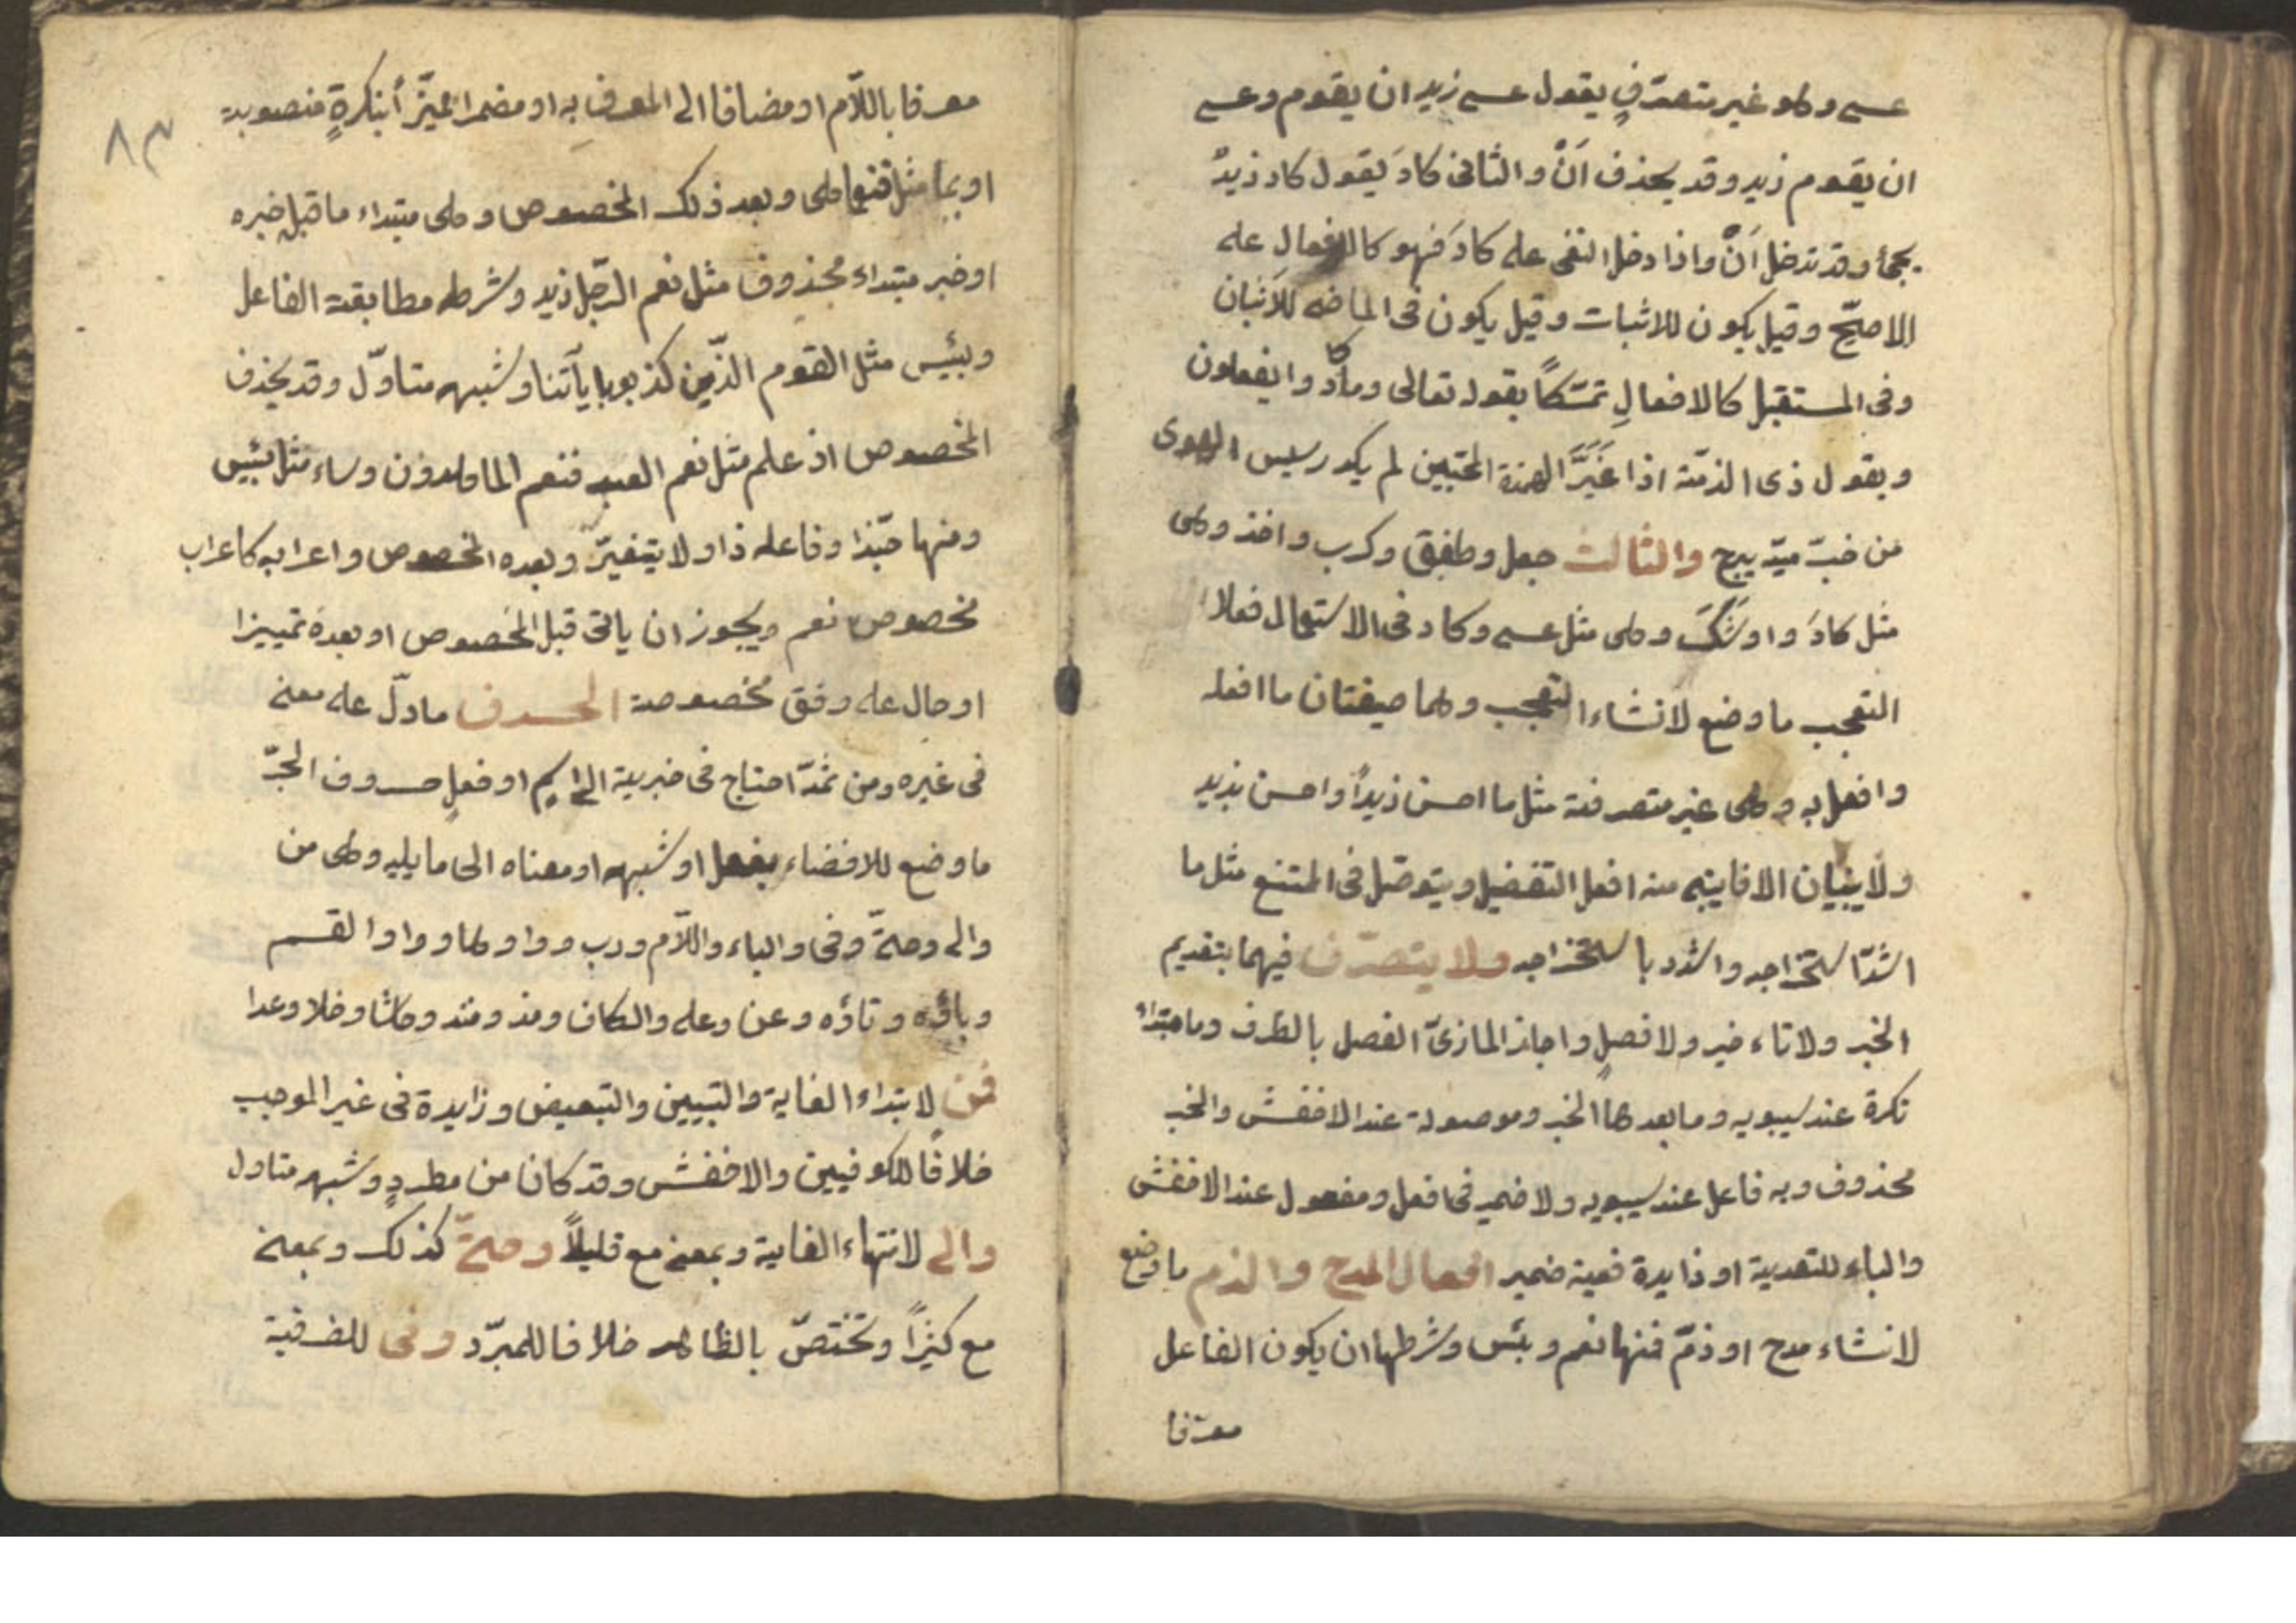 عسى وهو غير متصرّفٍ يقول عسى زيد ان يقوم وعسى
ان يقوم زيد وقد يحذف اَنْ والثانى كادَ يقول كاد زيدٌ
يجئ وقد تدخل اَنْ واذا دخل النفى على كادَ فهو كالافعال على
الاصحّ وقيل يكون للاثبات وقيل يكون فى الماضى للاثبات
وفى المستقبل كالافعالِ تمسّكاً بقوله تعالى وما كادوا يفعلون
وبقول ذى الذمّة اذا غَيَّرَ الهمزة المحبّين لم يكد رسيس الهوى
من حبّ ميّة يبرح والثالث جعل وطفِق وكرب واخذ وهى
مثل كادَ واوشَكَ وهى مثل عسى وكاد فى الاستعمال فعلا
التعجب ما وضع لانشاء التعجب وهما صيغتان ما افعله
وافعل به وهى غير متصرفة مثل ما احسن زيداً واحسن بزيد
ولا يبنيان الا فما يبنى منه افعل التفضيل ويتوصّل فى الممتنع مثل ما
اشدّ استخراجه واشدد باستخراجه ولا يتصرّف فيهما بتقديم
الخبر ولا تاءخير ولا فصلٍ واجاز المازنىّ الفصل بالظرف وما مبتداء
نكرة عند سيبويه وما بعدها الخبر وموصولة عند الاخفش والخبر
محذوف وبه فاعل عند سيبويه ولا ضمير فى افعل ومفعول عند الاخفش
والباء للتعدية او زايدة ففيه ضمير افعال المدح والذم ما وضع
لانشاء مدح او ذمّ فمنها نعم وبئس وشرطها ان يكون الفاعل
معرّفا
معرفا باللّام او مضافا الى المعرف به او مضمرا مميّزاً بنكرةٍ منصوبة
٨٣
او بما مثل فنعما هى وبعد ذلك المخصوص وهى مبتداء ما قبله خبره
او خبر مبتداء محذوف مثل نعم الرّجل زيد وشرطه مطابقة الفاعل
وبئيس مثل القوم الذّين كذبوا بايآتنا وشبهه متاوّل وقد يحذف
المخصوص اذ علم مثل نعم العبد فنعم الماهدون وساء مثل بئيس
ومنها حبّذا وفاعله ذا ولا يتغيرّ وبعده المخصوص واعرابه كاعراب
مخصوص نعم ويجوز ان ياتى قبل المخصوص او بعده تمييزا
او حال على وفق مخصوصة الحروف ما دلّ على معنى
فى غيره ومن ثمّة احتاج فى خبرية الى اسم او فعلٍ حروف الجرّ
ما وضع للافضاء بفعل او شبهه او معناه الى ما يليه وهى من
والى وحتّى وفى والباء واللّام ورب وواوها وواو القسم
وباؤه وتاؤه وعن وعلى والكاف ومذ ومنذ وحاشا وخلا وعدا
فمن لابتداء الغاية والتبيين والتبعيض وزايدة فى غير الموجب
خلافًا للكوفيين والاخفش وقد كان من مطرد وشبهه متاول
والى لانتهاء الغاية وبمعنى مع قليلاً وحتّى كذلك وبمعنى
مع كثيراً وتختصّ بالظاهر خلافا للمبرّد وفى للظرفية